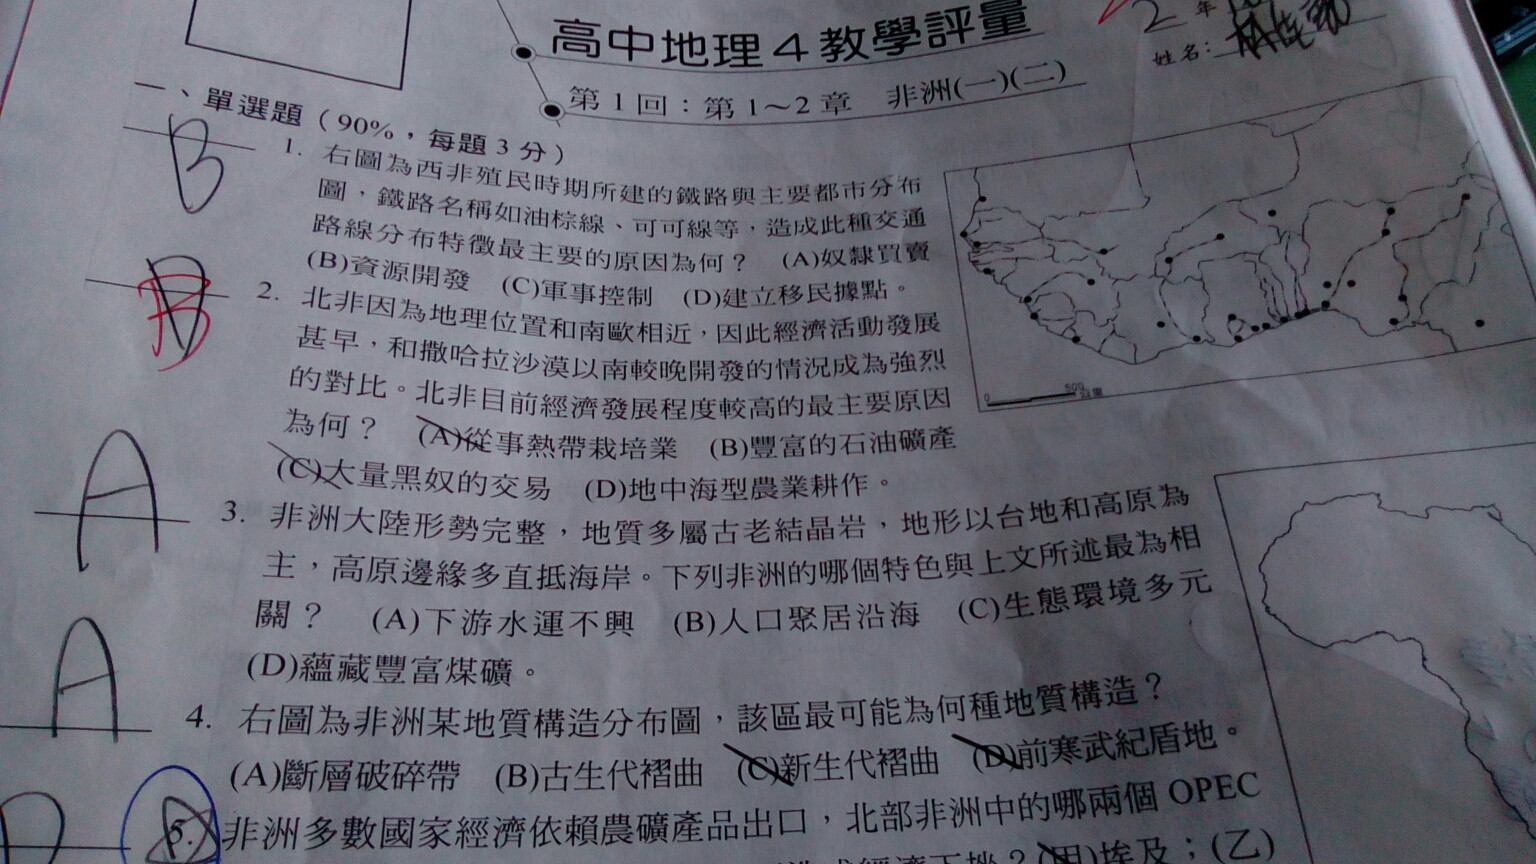 高中地理4教學評量
2 年
姓名：
第1回：第1～2章 非洲(一)(二)
一、單選題（90%，每題3分）
B 1. 右圖為西非殖民時期所建的鐵路與主要都市分布
圖，鐵路名稱如油棕線、可可線等，造成此種交通
路線分布特徵最主要的原因為何？ (A)奴隸買賣
(B)資源開發 (C)軍事控制 (D)建立移民據點。
500
0 公里
B 2. 北非因為地理位置和南歐相近，因此經濟活動發展
甚早，和撒哈拉沙漠以南較晚開發的情況成為強烈
的對比。北非目前經濟發展程度較高的最主要原因
為何？ (A)從事熱帶栽培業 (B)豐富的石油礦產
(C)大量黑奴的交易 (D)地中海型農業耕作。
A 3. 非洲大陸形勢完整，地質多屬古老結晶岩，地形以台地和高原為
主，高原邊緣多直抵海岸。下列非洲的哪個特色與上文所述最為相
關？ (A)下游水運不興 (B)人口聚居沿海 (C)生態環境多元
(D)蘊藏豐富煤礦。
A 4. 右圖為非洲某地質構造分布圖，該區最可能為何種地質構造？
(A)斷層破碎帶 (B)古生代褶曲 (C)新生代褶曲 (D)前寒武紀盾地。
5. 非洲多數國家經濟依賴農礦產品出口，北部非洲中的哪兩個 OPEC
(甲)埃及；(乙)